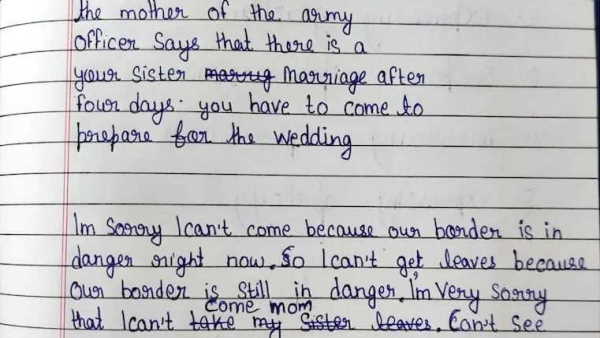 the mother of the army
officer says that there is a
your sister marrug marriage after
four days. you have to come to
prepare for the wedding
Im sorry I can't come because our border is in
danger right now. So I can't get leaves because
Our border is still in danger. I'm very sorry
come mom
that I can't take my sister leaves. Con't see